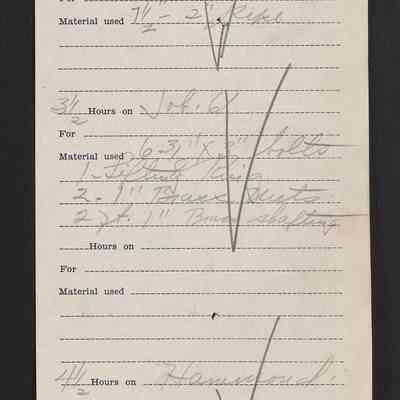 For
Material used 7 1/2 - 2" Pipe
3 1/2 Hours on Job. 6
For
Material used 6-3/4" x 3" bolts
1- Filling Ring
2. 1" Brass Nuts
2 ft. 1" Brass shafting
Hours on
For
Material used
4 1/2 Hours on Hammond.